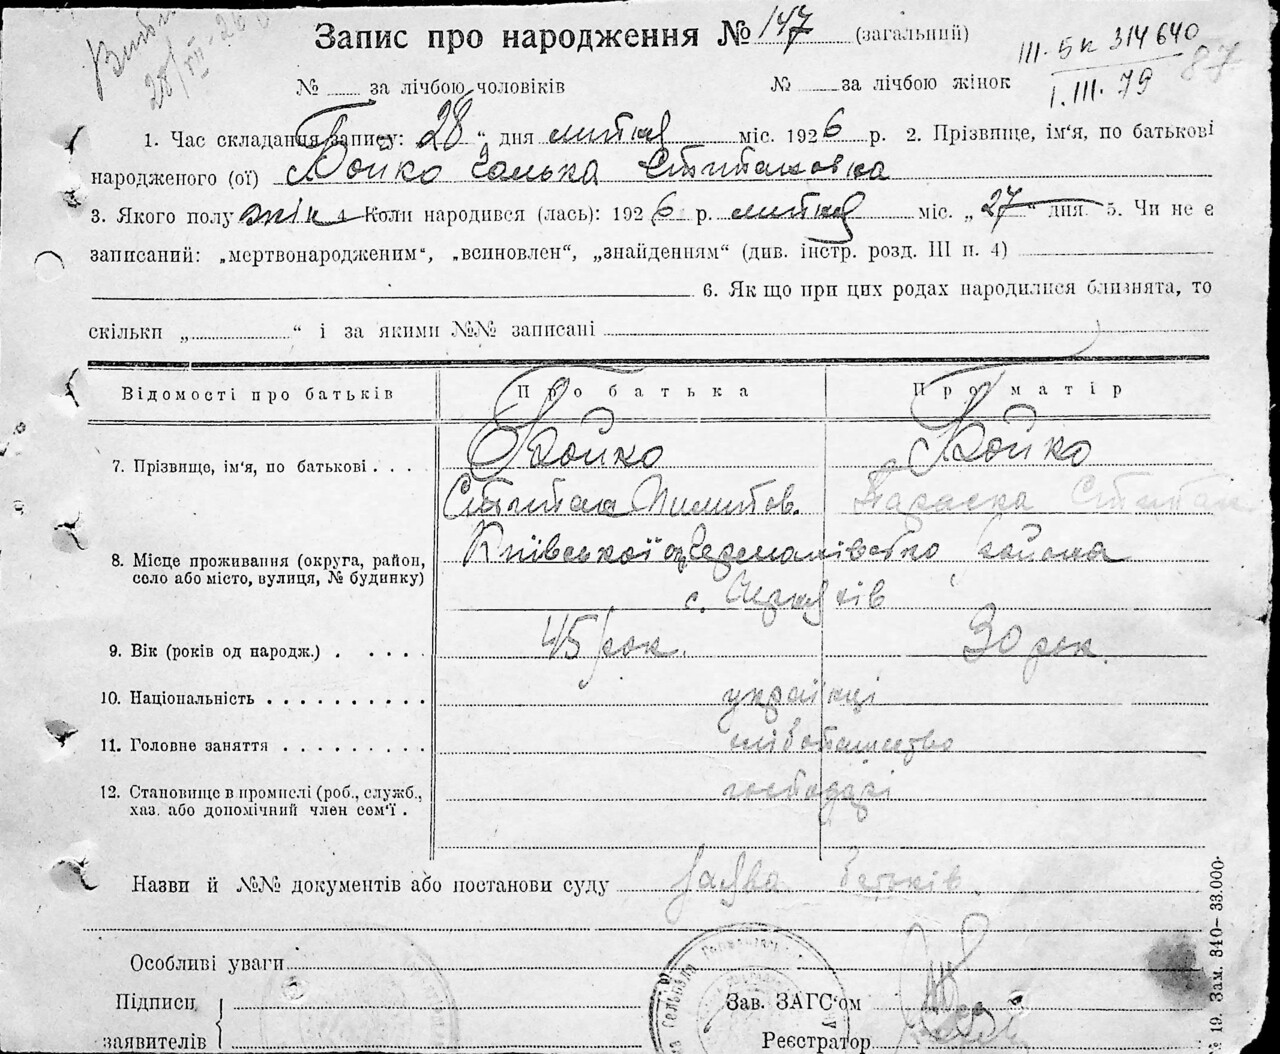 Запис про народження № 147 (загальний)
III. 5к 314640
1. III. 79
87
28/VII-26
№ ...... за лічбою чоловіків № ......... за лічбою жінок
1. Час складання запису: 28 „ дня лютня міс. 1926 р. 2. Прізвище, ім'я, по батькові
народженого (ої) Бойко Галька Степановна
3. Якого полу жін 4 Коли народився (лась): 1926 р. лютня міс. „ 27 “ дня. 5. Чи не є
записаний: „мертвонародженим“, „всиновлен“, „знайденням“ (див. інстр. розд. III п. 4)
6. Як що при цих родах народилися близнята, то
скільки „ “ і за якими №№ записані
Відомості про батьків Про батька Про матір
7. Прізвище, ім'я, по батькові . . . Бойко Бойко
Степан Пилипов. Параска Степан
8. Місце проживання (округа, район, Київської о Германівсько района
село або місто, вулиця, № будинку) с.
9. Вік (років од народж.) . . . . . 45 рок. 30 рок.
10. Національність . . . . . . . . . . українці
11. Головне заняття . . . . . . . . . хліборобство
12. Становище в промислі (роб., служб., господарі
хаз. або допомічний член сем'ї .
Назви й №№ документів або постанови суду заява батьків.
Особливі уваги
Підписи Зав. ЗАГС'ом
заявителів Реєстратор
19. Зам. 840– 33.000·